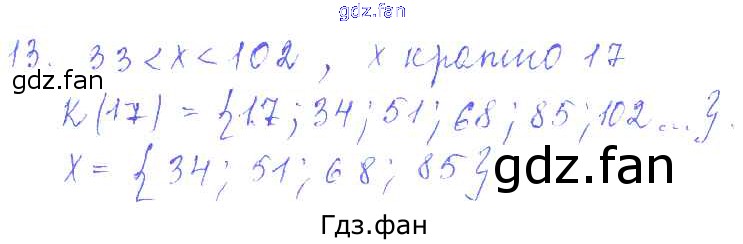 gdz.fan
13. 33 < x < 102, x кратно 17
gdz.fan gdz.fan
K(17) = {17; 34; 51; 68; 85; 102...}.
x = {34; 51; 68; 85}
gdz.fan
Гдз.фан